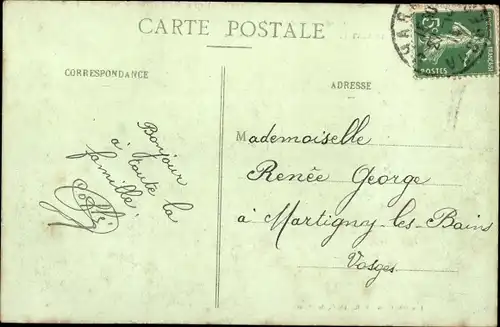 CARTE POSTALE
CORRESPONDANCE
ADRESSE
5c
POSTES
Bonjour
à toute la
famille!
Mademoiselle
Renée George
à Martigny-les-Bains
Vosges